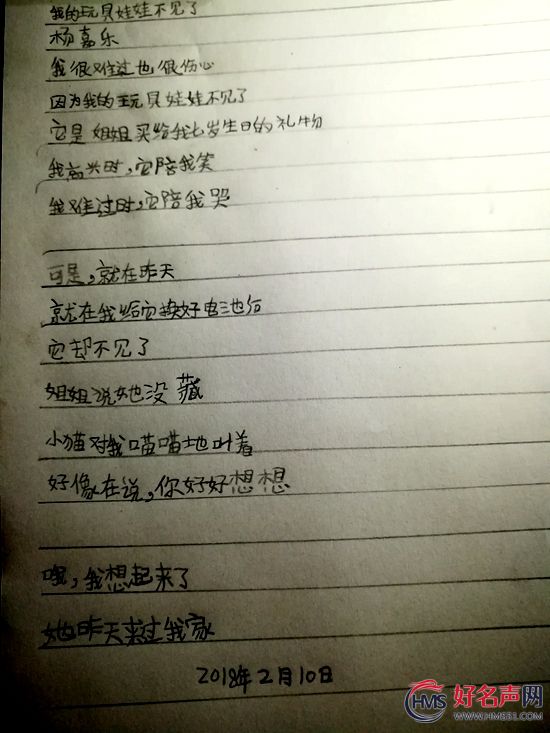 我的玩具娃娃不见了
杨嘉乐
我很难过也很伤心
因为我的玩具娃娃不见了
它是姐姐买给我七岁生日的礼物
我高兴时，它陪我笑
我难过时，它陪我哭
可是，就在昨天
就在我给它换好电池后
它却不见了
姐姐说她没藏
小猫对我喵喵地叫着
好像在说，你好好想想
哦，我想起来了
她昨天来过我家
2018年2月10日
HMS 好名声网
WWW.HMS51.COM